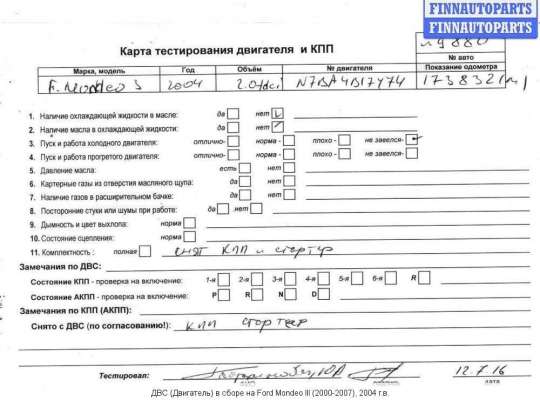 FINNAUTOPARTS
FINNAUTOPARTS
Карта тестирования двигателя и КПП
№ авто
Марка, модель Год Объём № двигателя Показание одометра
F. Mondeo 3 2004 2.0 tdci N7BA4B17474 173832
1. Наличие охлаждающей жидкости в масле: да нет
2. Наличие масла в охлаждающей жидкости: да нет
3. Пуск и работа холодного двигателя: отлично- норма - плохо - не завелся-
4. Пуск и работа прогретого двигателя: отлично- норма - плохо - не завелся-
5. Давление масла: есть нет
6. Картерные газы из отверстия масляного щупа: да нет
7. Наличие газов в расширительном бачке: да нет
8. Посторонние стуки или шумы при работе: да нет
9. Дымность и цвет выхлопа: норма
10. Состояние сцепления: норма
11. Комплектность : полная снят КПП и стартер
Замечания по ДВС:
Состояние КПП - проверка на включение: 1-я 2-я 3-я 4-я 5-я 6-я R
Состояние АКПП - проверка на включение: P R N D
Замечания по КПП (АКПП):
Снято с ДВС (по согласованию!): КПП стартер
Тестировал: 12.7.16
дата
ДВС (Двигатель) в сборе на Ford Mondeo III (2000-2007), 2004 г.в.